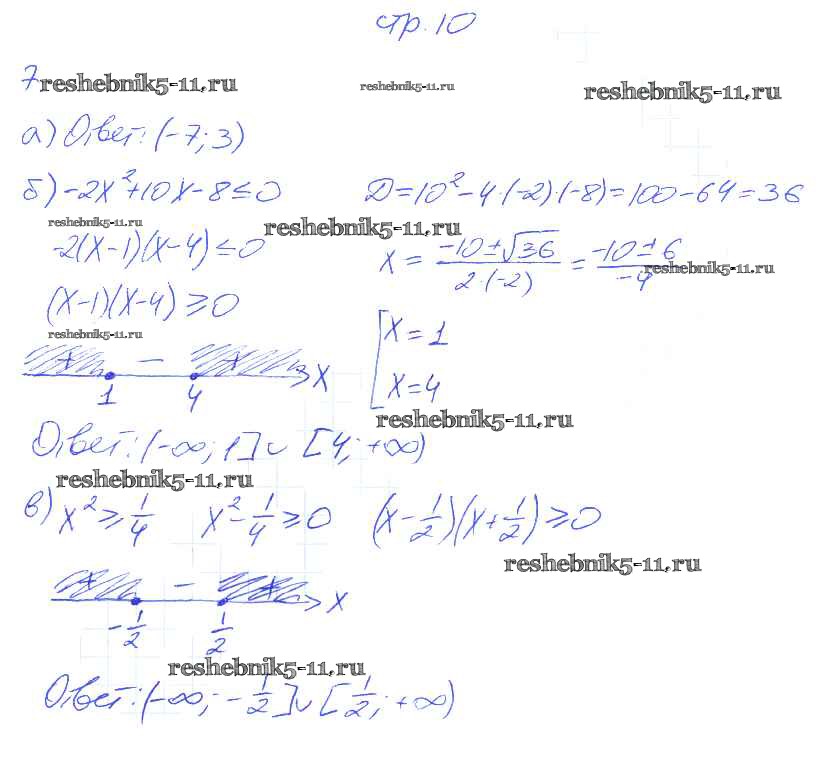 стр. 10
7 reshebnik5-11.ru reshebnik5-11.ru reshebnik5-11.ru
а) Ответ: (-7; 3)
б) -2x²+10x-8≤0 D=10²-4·(-2)·(-8)=100-64=36
reshebnik5-11.ru reshebnik5-11.ru
-2(x-1)(x-4)≤0 x = (-10±√36)/(2·(-2)) = (-10±6)/(-4)
reshebnik5-11.ru
(x-1)(x-4)≥0 [x=1
reshebnik5-11.ru
+ − + x
1 4 x=4
reshebnik5-11.ru
Ответ: (-∞; 1]∪[4; +∞)
reshebnik5-11.ru
в) x²≥1/4 x²-1/4≥0 (x-1/2)(x+1/2)≥0
reshebnik5-11.ru
+ − + x
-1/2 1/2
reshebnik5-11.ru
Ответ: (-∞; -1/2]∪[1/2; +∞)